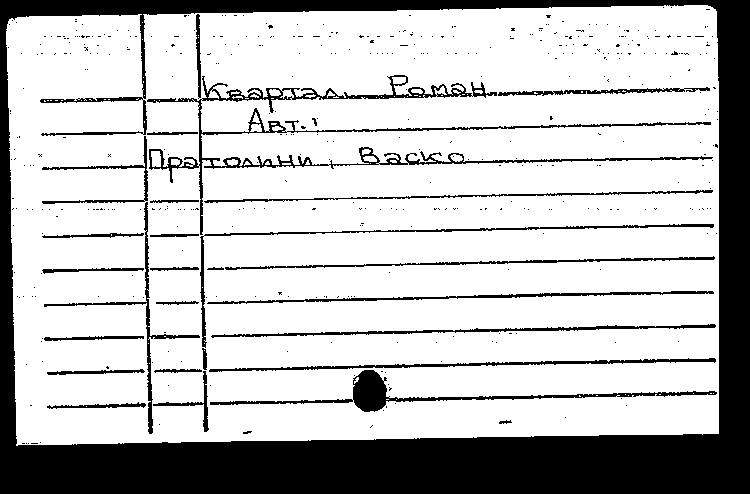 Квартал. Роман
Авт.:
Пратолини, Васко